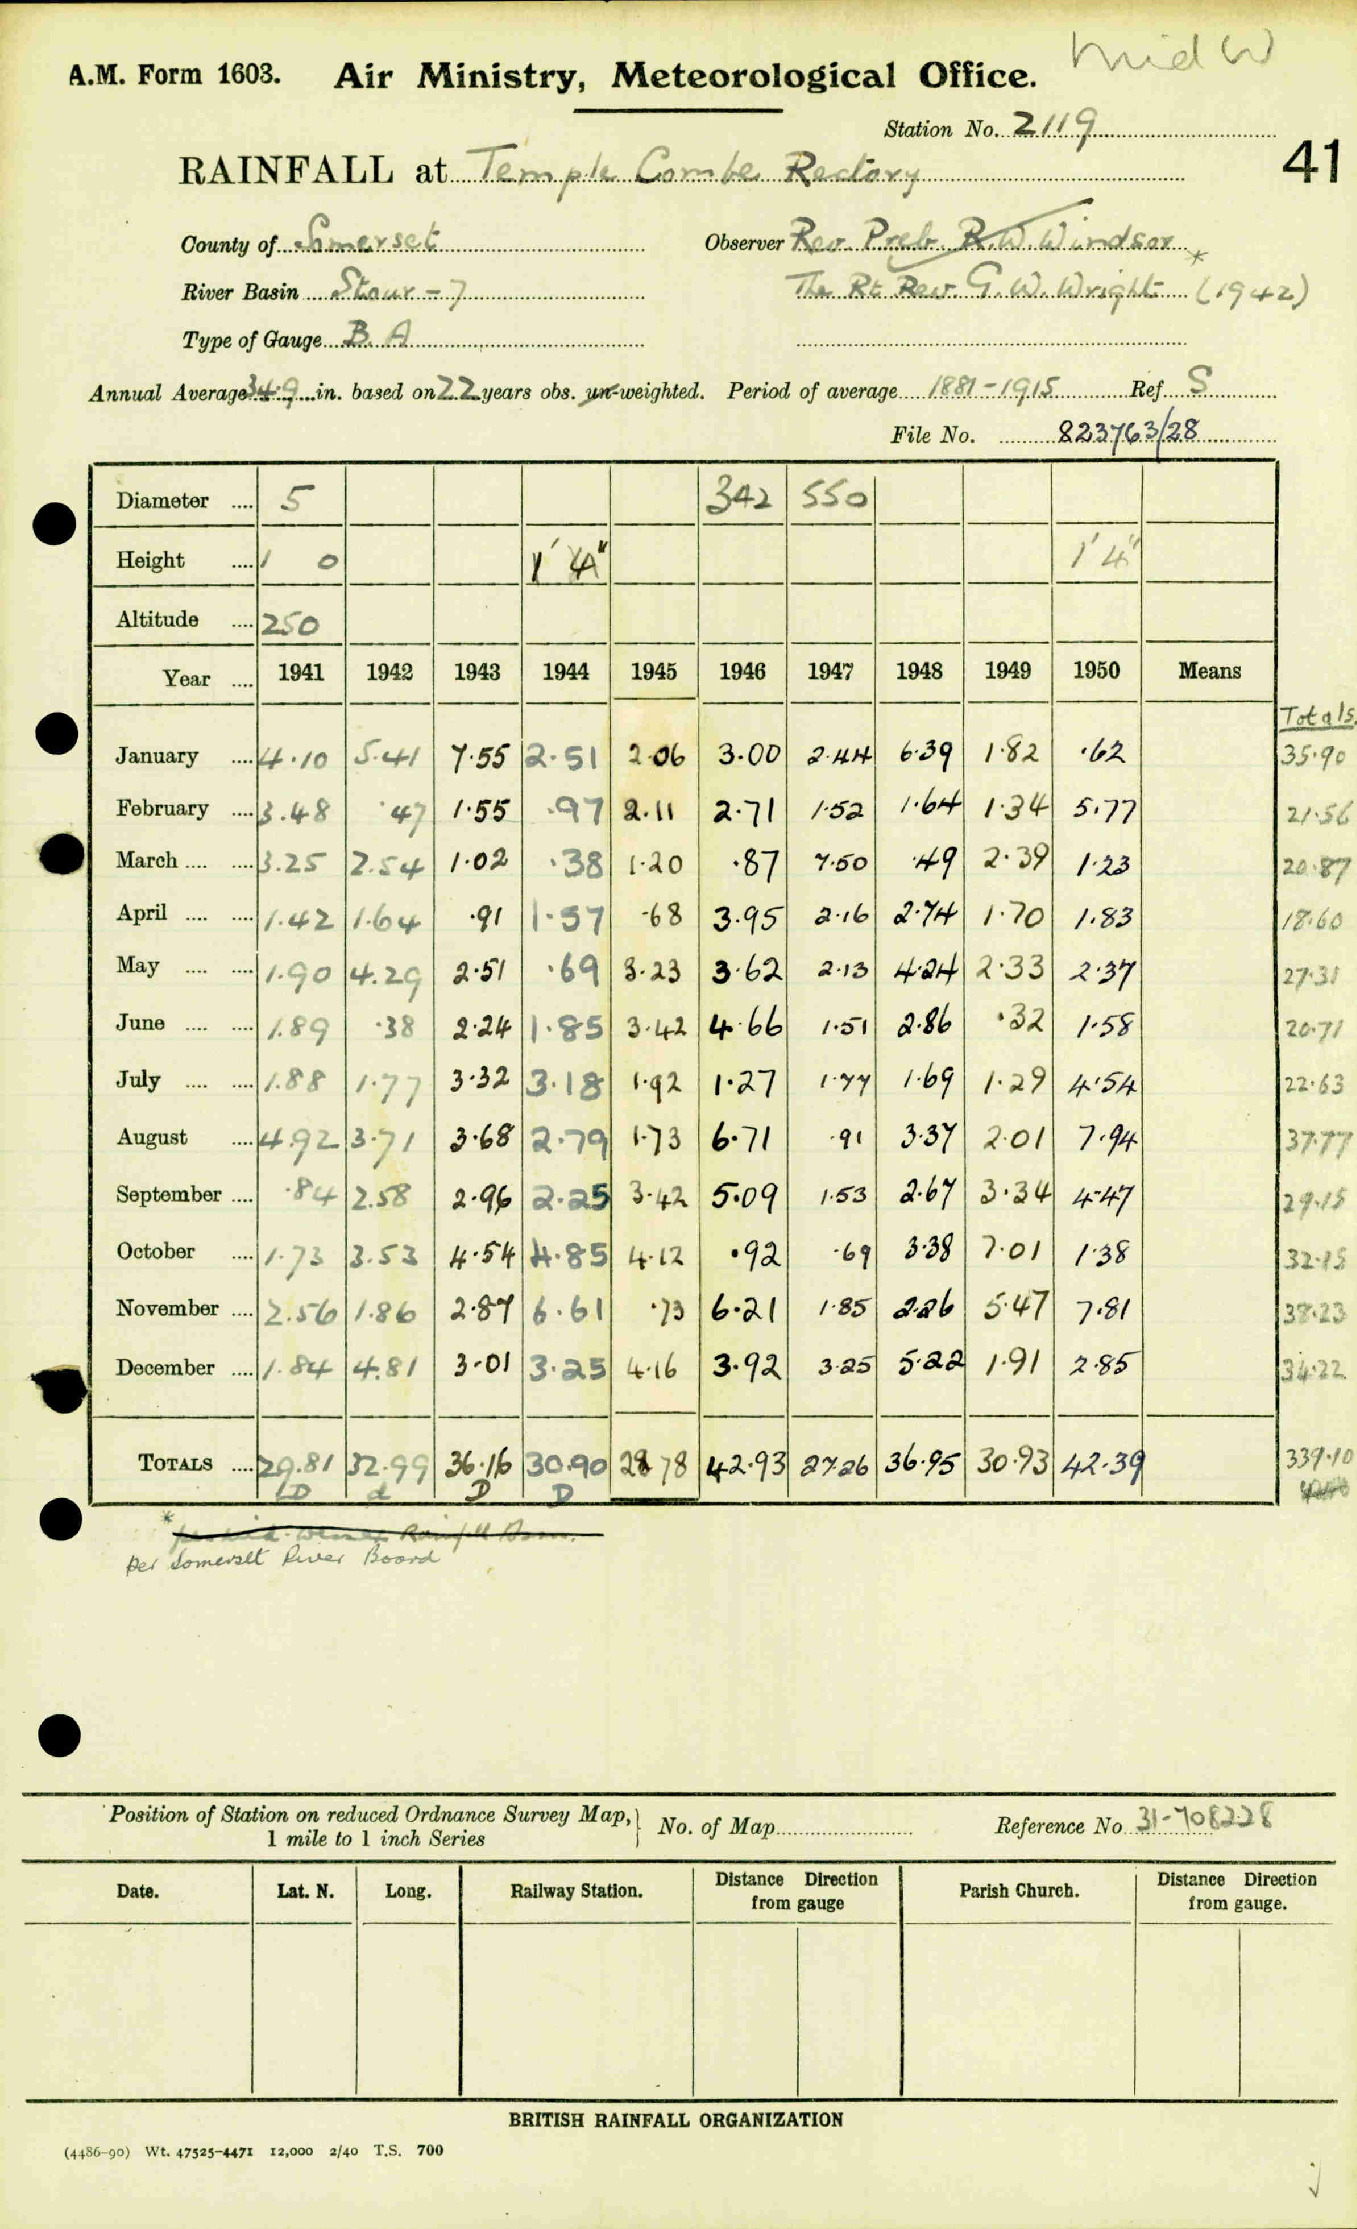 Mid W
A.M. Form 1603. Air Ministry, Meteorological Office.
Station No. 2119
41
RAINFALL at Temple Combe Rectory
County of Somerset Observer Rev. Preb. R.W. Windsor
River Basin Stour - 7 The Rt Rev. G.W. Wright * (1942)
Type of Gauge B A
Annual Average 34.9 in. based on 22 years obs. un-weighted. Period of average 1881-1915 Ref. S
File No. 823763/28
Diameter .... 5 342 550
Height .... 1 0 1' 4" 1' 4"
Altitude .... 250
Year .... 1941 1942 1943 1944 1945 1946 1947 1948 1949 1950 Means
Totals.
January .... 4.10 5.41 7.55 2.51 2.06 3.00 2.44 6.39 1.82 .62 35.90
February .... 3.48 .47 1.55 .97 2.11 2.71 1.52 1.64 1.34 5.77 21.56
March .... .... 3.25 2.54 1.02 .38 1.20 .87 7.50 .49 2.39 1.23 20.87
April .... .... 1.42 1.64 .91 1.57 .68 3.95 2.16 2.74 1.70 1.83 18.60
May .... .... 1.90 4.29 2.51 .69 3.23 3.62 2.13 4.24 2.33 2.37 27.31
June .... .... 1.89 .38 2.24 1.85 3.42 4.66 1.51 2.86 .32 1.58 20.71
July .... .... 1.88 1.77 3.32 3.18 1.92 1.27 1.77 1.69 1.29 4.54 22.63
August .... 4.92 3.71 3.68 2.79 1.73 6.71 .91 3.37 2.01 7.94 37.77
September .... .84 2.58 2.96 2.25 3.42 5.09 1.53 2.67 3.34 4.47 29.15
October .... 1.73 3.53 4.54 4.85 4.12 .92 .69 3.38 7.01 1.38 32.15
November .... 2.56 1.86 2.87 6.61 .73 6.21 1.85 2.26 5.47 7.81 38.23
December .... 1.84 4.81 3.01 3.25 4.16 3.92 3.25 5.22 1.91 2.85 34.22
TOTALS .... 29.81 32.99 36.16 30.90 28.78 42.93 27.26 36.95 30.93 42.39 339.10
D d D D
*
per Somerset River Board
Position of Station on reduced Ordnance Survey Map, No. of Map Reference No 31-708228
1 mile to 1 inch Series
Date. Lat. N. Long. Railway Station. Distance Direction from gauge Parish Church. Distance Direction from gauge.
BRITISH RAINFALL ORGANIZATION
(4486-90) Wt. 47525-4471 12,000 2/40 T.S. 700